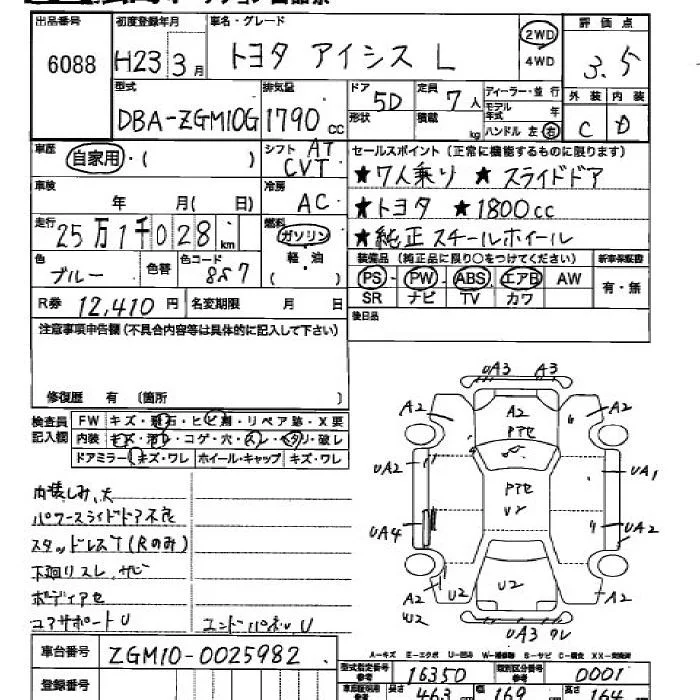 出品番号 初度登録年月 車名・グレード 評価点
6088 H23 3月 トヨタ アイシス L 2WD 4WD 3.5
型式 排気量 ドア 定員 ディーラー・並行 外装 内装
DBA-ZGM10G 1790cc 5D 7人 モデル年式 年
形状 積載 kg ハンドル 左・右 C D
車歴 自家用・( ) シフト AT CVT セールスポイント(正常に機能するものに限ります)
★7人乗り ★スライドドア
車検 年 月( 日) 冷房 AC ★トヨタ ★1800cc
走行 25万1千028km 燃料 ガソリン ★純正スチールホイール
色 ブルー 色替 色コード 8S7 軽・油 ( ) 装備品(純正品に限り○をつけてください) 新車保証書
PS・PW・ABS・エアB AW 有・無
R券 12,410円 名変期限 月 日 SR ナビ TV カワ
注意事項申告欄(不具合内容等は具体的に記入して下さい) 後日品
修復歴 有 〔箇所 〕
検査員記入欄 FW キズ・飛石・ヒビ割・リペア跡・X要
内装 キズ・汚レ・コゲ・穴・スレ・ヘタリ・破レ
ドアミラー キズ・ワレ ホイール・キャップ キズ・ワレ
内装しみ、大
パワースライドドア不良
スタッドレスT(Rのみ)
下廻りスレ、サビ
ボディアセ
コアサポートU エンドパネルU
UA3 A3
A2 A2 A2
アセ
UA2 UA1
アセ
UA4 UA2
A2 U2 U2 A2
W2
UA3 ワレ
A-キズ E-エクボ U-凹み W-補修跡 S-サビ C-腐食 XX-交換済
車台番号 ZGM10-0025982 型式指定番号 参考 16350 類別区分番号 参考 0001
登録番号 長さ 463 幅 169 高さ 164